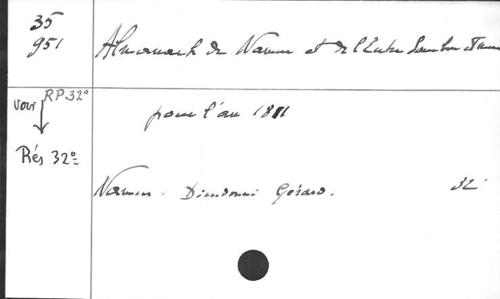 35
951
Almanach de Namur et de l'Entre Sambre et Meuse
pour l'an 1811
voir RP 32°
Rés 32°
Namur. Dieudonné Gérard. 32°